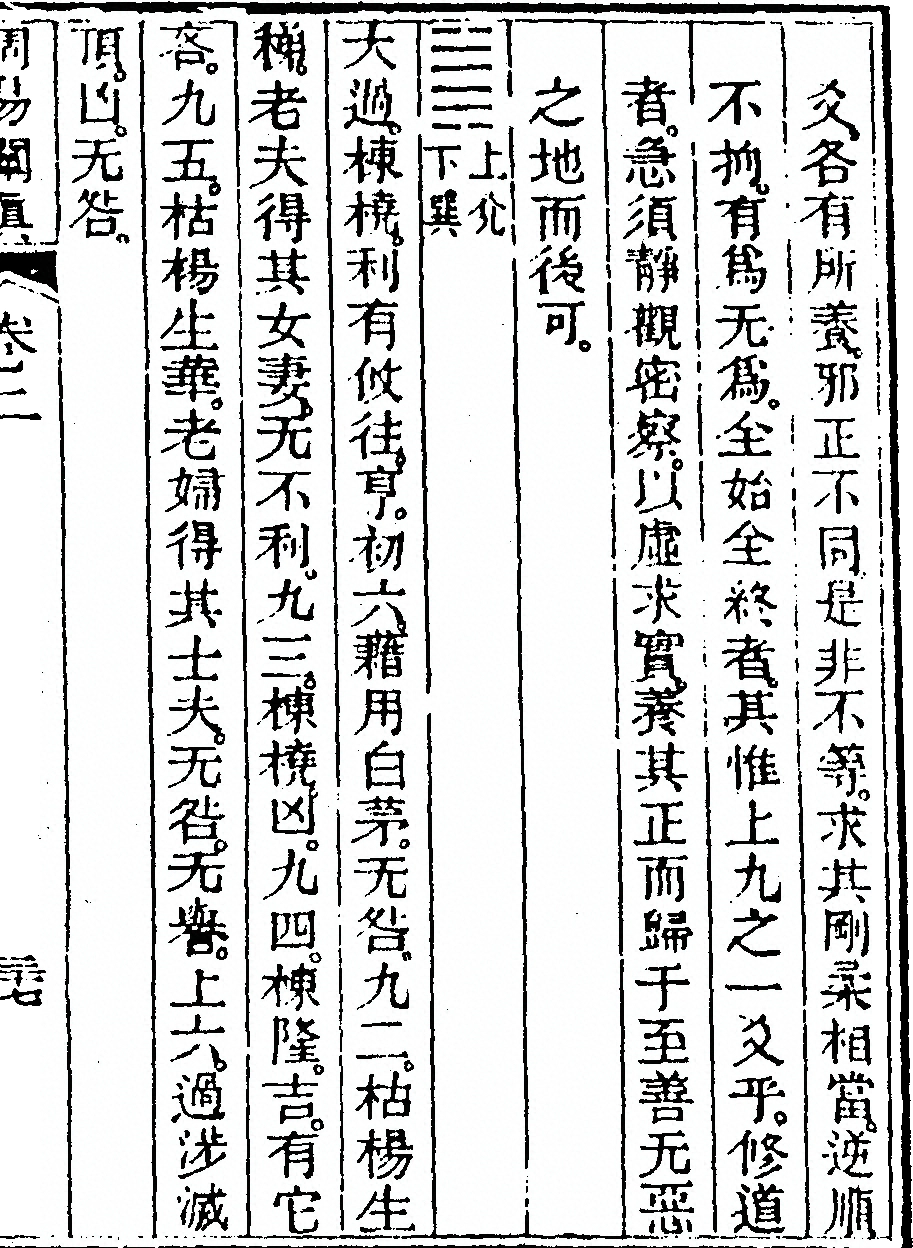 爻各有所養。邪正不同。是非不等。求其剛柔相當。逆順
不拘。有爲无爲。全始全終者。其惟上九之一爻乎。修道
者。急須靜觀密察。以虛求實。養其正而歸于至善无惡
之地而後可。
䷛上兌下巽
大過。棟橈。利有攸往。亨。初六。藉用白茅。无咎。九二。枯楊生
稊。老夫得其女妻。无不利。九三。棟橈凶。九四。棟隆。吉。有它
吝。九五。枯楊生華。老婦得其士夫。无咎。无譽。上六。過涉滅
頂。凶。无咎。
周易闡眞 卷二 三十七